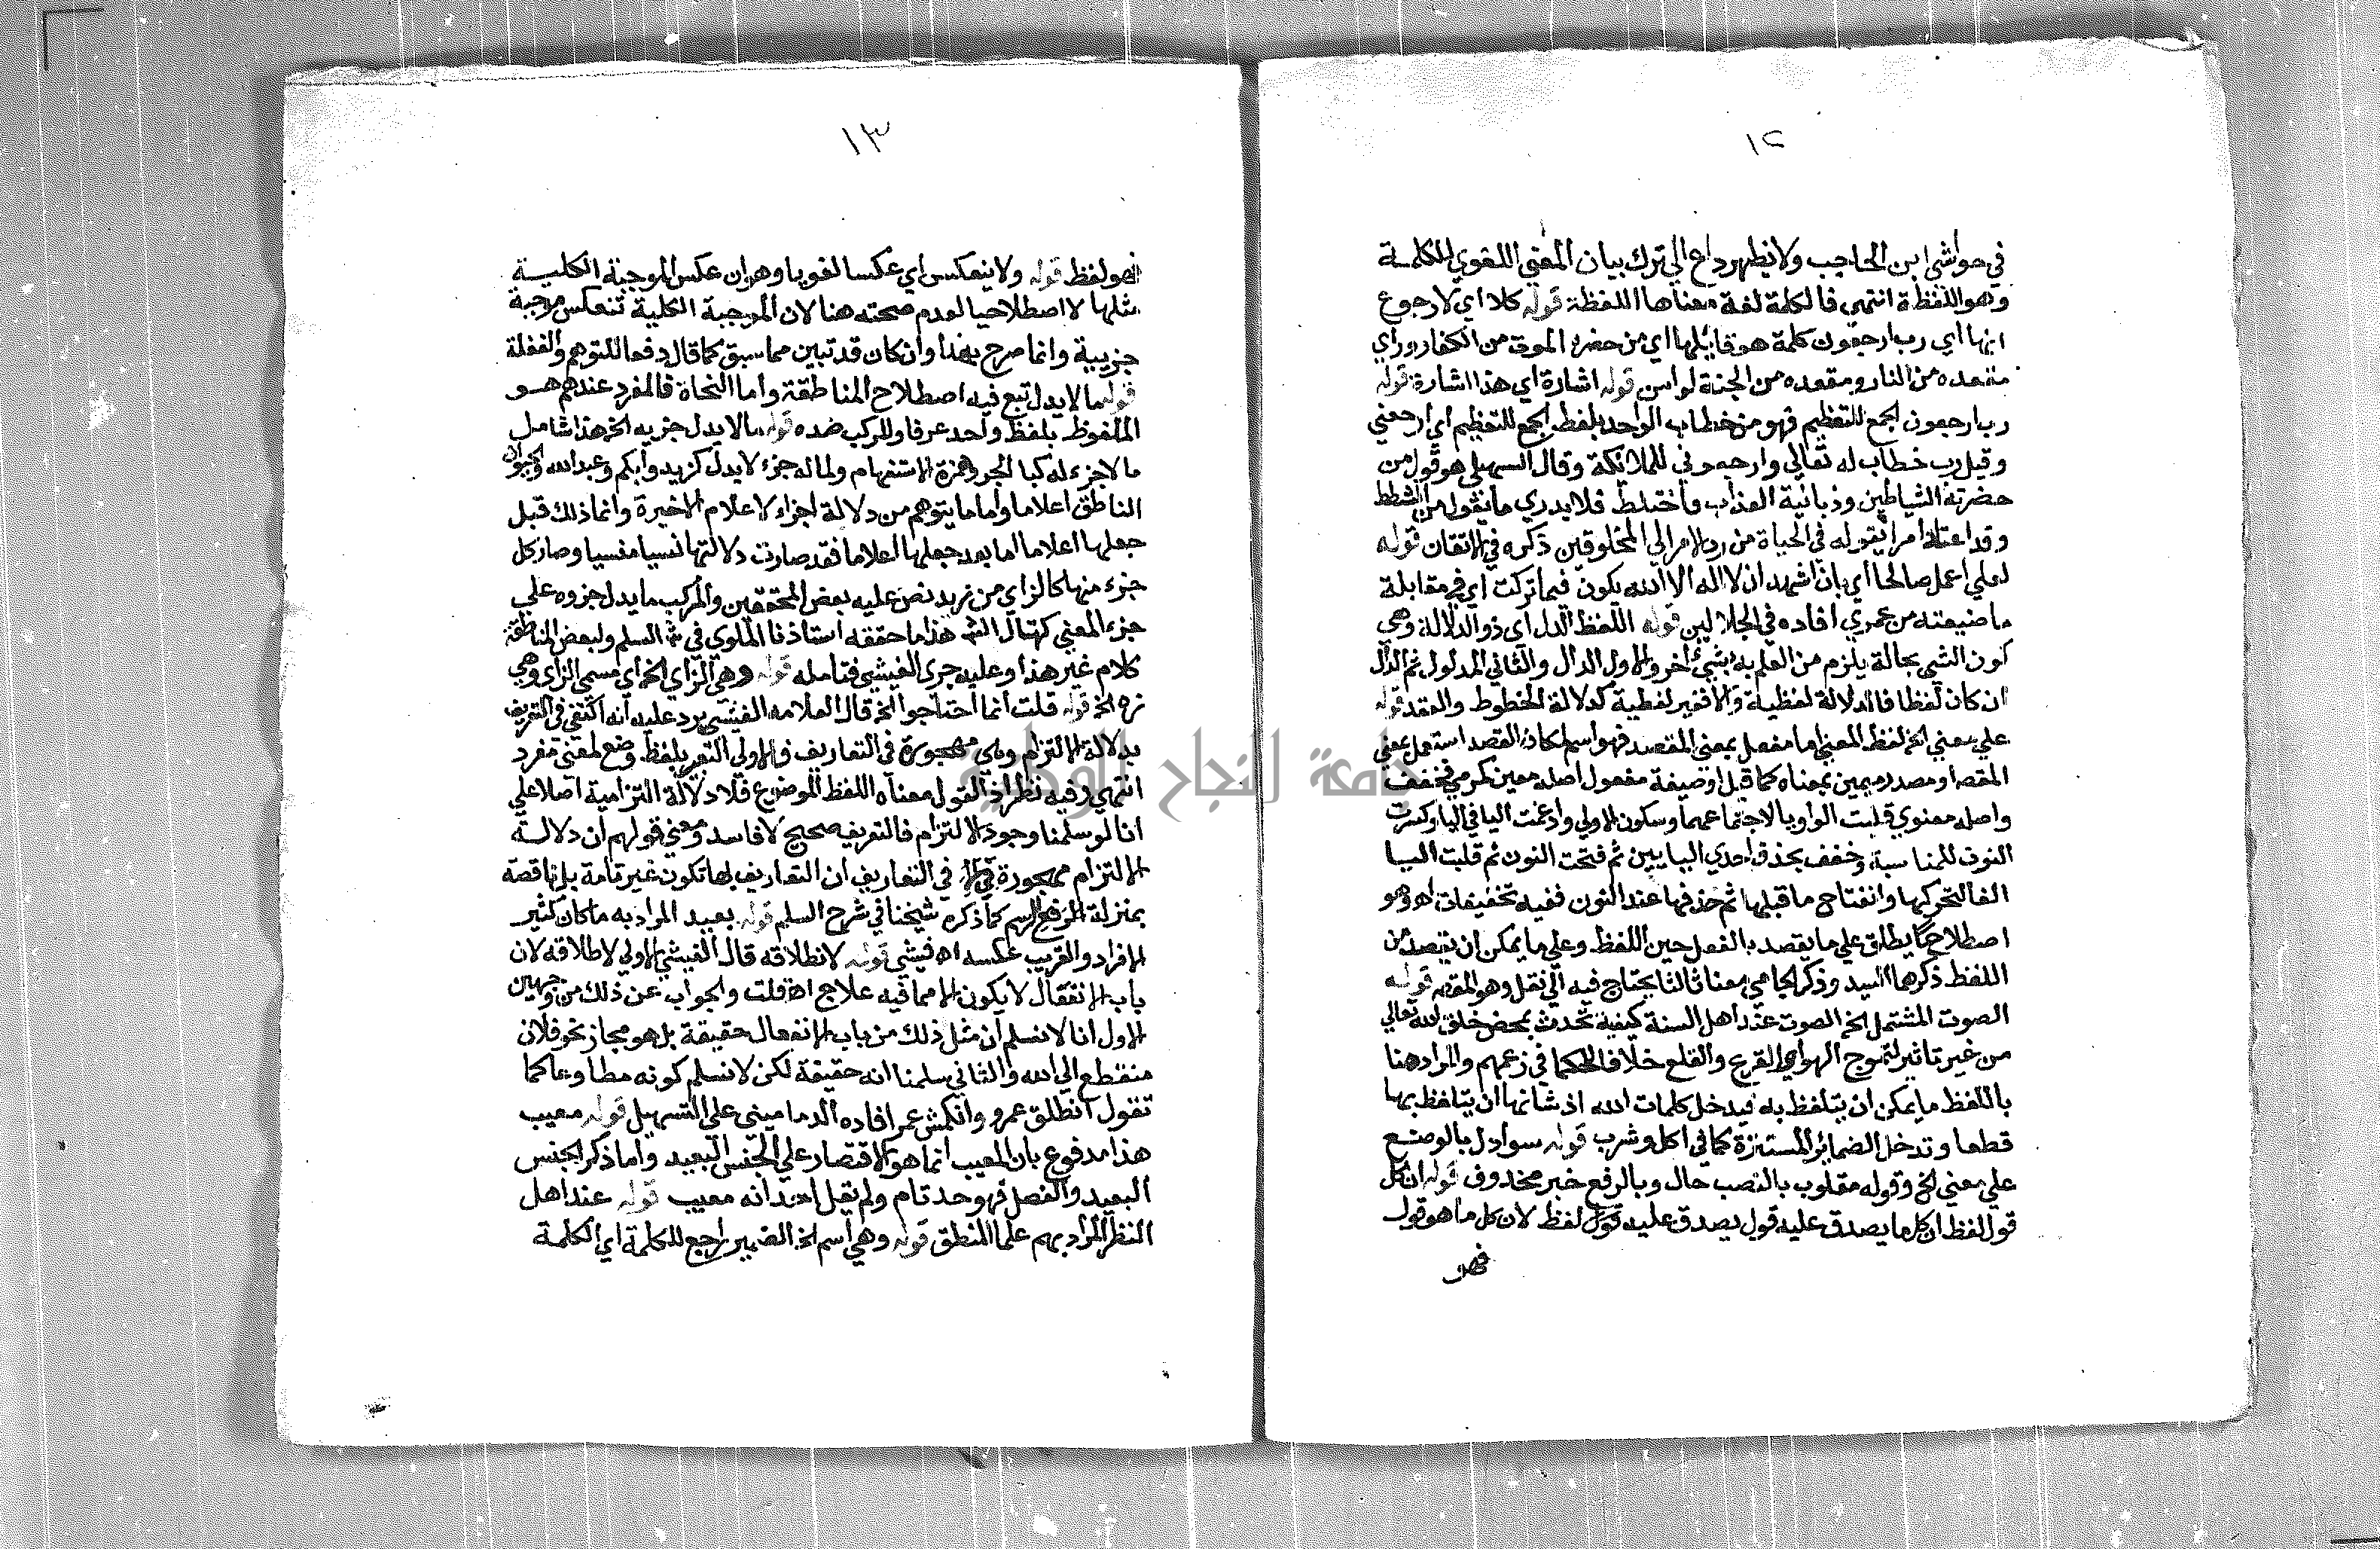 ١٢
في حواشي ابن الحاجب ولا يظهر داع الي ترك بيان المعني اللغوي للكلمة
وهو اللفظة انتهي فالكلمة لغة معناها اللفظة قوله كلا اي لا رجوع
انها اي رب ارجعون كلمة هو قايلها اي من حضره الموت من الكفار وراي
مقعده من النار ومقعده من الجنة لو امن قوله اشارة اي هذا اشارة قوله
رب ارجعون الجمع للتعظيم فهو من خطاب الواحد بلفظ الجمع للتعظيم اي ارجعني
وقيل رب خطاب له تعالي وارجعوني للملائكة وقال السهيلي هو قول من
حضرته الشياطين وزبانية العذاب فاختلط فلا يدري ما يقوله من الشطط
وقد اعتاد امرا يقوله في الحياة من رد الامر الي المخلوقين ذكره في الاتقان قوله
لعلي اعمل صالحا اي بان اشهد ان لا اله الا الله يكون فيما تركت اي في مقابلة
ما ضيعته من عمري افاده في الجلالين قوله اللفظ الدال اي ذو الدلالة وهي
كون الشي بحالة يلزم من العلم به بشيء اخر والاول الدال والثاني المدلول ثم الدال
ان كان لفظا فالدلالة لفظية والا فغير لفظية كدلالة الخطوط والعقد قوله
علي معني الخ لفظ المعني اما مفعل بمعني المقصد فهو اسم لمكان القصد استعمل بمعني
المقصد او مصدر ميمي بمعناه كما قيل او صيغة مفعول اصله معين كرمي فخفف
واصله معنوي قلبت الواو يا لاجتماعهما وسكون الاولي وادغمت اليا في اليا وكسرت
النون للمناسبة وخفف بحذف احدي اليايين ثم فتحت النون ثم قلبت اليا
الفا لتحركها وانفتاح ما قبلها ثم حذفها عند النون ففيه تخفيفات اه وهو
اصطلاحا يطلق علي ما يقصد بالفعل حين اللفظ وعلي ما يمكن ان يقصد من
اللفظ ذكرها السيد وذكر الجامي معنا ثالثا يحتاج فيه الي نقل وهو المقصد قوله
الصوت المشتمل الخ الصوت عند اهل السنة كيفية تحدث بمحض خلق الله تعالي
من غير تاثير لتموج الهوا والقرع والقلع خلافا للحكما في زعمهم والمراد هنا
باللفظ ما يمكن ان يتلفظ به فيدخل كلمات الله اذ شانها ان يتلفظ بها
قطعا وتدخل الضمائر المستترة كما في اكل وشرب قوله سوا دل بالوضع
علي معني الخ وقوله مقلوب بالنصب حال وبالرفع خبر محذوف قوله ان كل
قول لفظ ان كل ما يصدق عليه قول يصدق عليه لفظ لان كل ما هو قول
فهو
١٣
فهو لفظ قوله ولا ينعكس اي عكسا لغويا وهو ان عكس الموجبة الكلية
مثلها لا اصطلاحيا لعدم صحته هنا لان الموجبة الكلية تنعكس موجبة
جزيية وانما صرح بهذا وان كان قد تبين مما سبق كما قال دفعا للتوهم والغفلة
قوله ما لا يدل تبع فيه اصطلاح المناطقة واما النحاة فالمفرد عندهم هو
الملفوظ بلفظ واحد عرفا والمركب ضده قوله ما لا يدل جزيه الخ هذا شامل
ما لا جزء له كبا الجر وهمزة الاستفهام ولما له جزء لا يدل كزيد وابكم وعبد الله والحيوان
الناطق اعلاما واما ما يتوهم من دلالة اجزاء الاعلام الاخيرة وانما ذلك قبل
جعلها اعلاما اما بعد جعلها اعلاما فقد صارت دلالتها نسيا منسيا وصار كل
جزء منها كالزاي من زيد نص عليه بعض المحققين والمركب ما يدل جزوه علي
جزء المعني كهتال الشم هذا ما حققه استاذنا الملوي في شم السلم ولبعض المناطقة
كلام غير هذا وعليه جري الفيشي فتامله قوله وهي الزاي الخ اي مسمي الزاي وهي
زه الخ قوله قلت انما احتاجوا الخ قال العلامه الفيشي يرد عليه انه اكتفي في التعريف
بدلالة الالتزام وهي مهجورة في التعاريف فالاولي التعبير بلفظ وضع لمعني مفرد
انتهي وفيه نظر اذ القول معناه اللفظ الموضوع فلا دلالة التزامية اصلا علي
انا لو سلمنا وجود الالتزام فالتعريف صحيح لا فاسد ومعني قولهم ان دلالة
الالتزام مهجورة في التعاريف ان التعاريف بها تكون غير تامة بل ناقصة
بمنزلة الرسم كما ذكره شيخنا في شرح السلم قوله بعيد المراد به ما كان كثير
الافراد والقريب عكسه اه فيشي قوله لانطلاقه قال الفيشي الاولي لاطلاقه لان
باب الانفعال لا يكون الا مما فيه علاج اه قلت والجواب عن ذلك من وجهين
الاول انا لا نسلم ان مثل ذلك من باب الانفعال حقيقة بل هو مجاز نحو فلان
منقطع الي الله والثاني سلمنا انه حقيقة لكن لا نسلم كونه مطاوعا كما
تقول انطلق عمرو وانكمش عمر افاده الدماميني علي التسهيل قوله معيب
هذا مدفوع بان المعيب انما هو الاقتصار علي الجنس البعيد واما ذكر الجنس
البعيد والفصل فهو حد تام ولم يقل احد انه معيب قوله عند اهل
النظر المراد بهم علما المنطق قوله وهي اسم الخ الضمير راجع للكلمة اي الكلمة
جامعة النجاح الوطنية